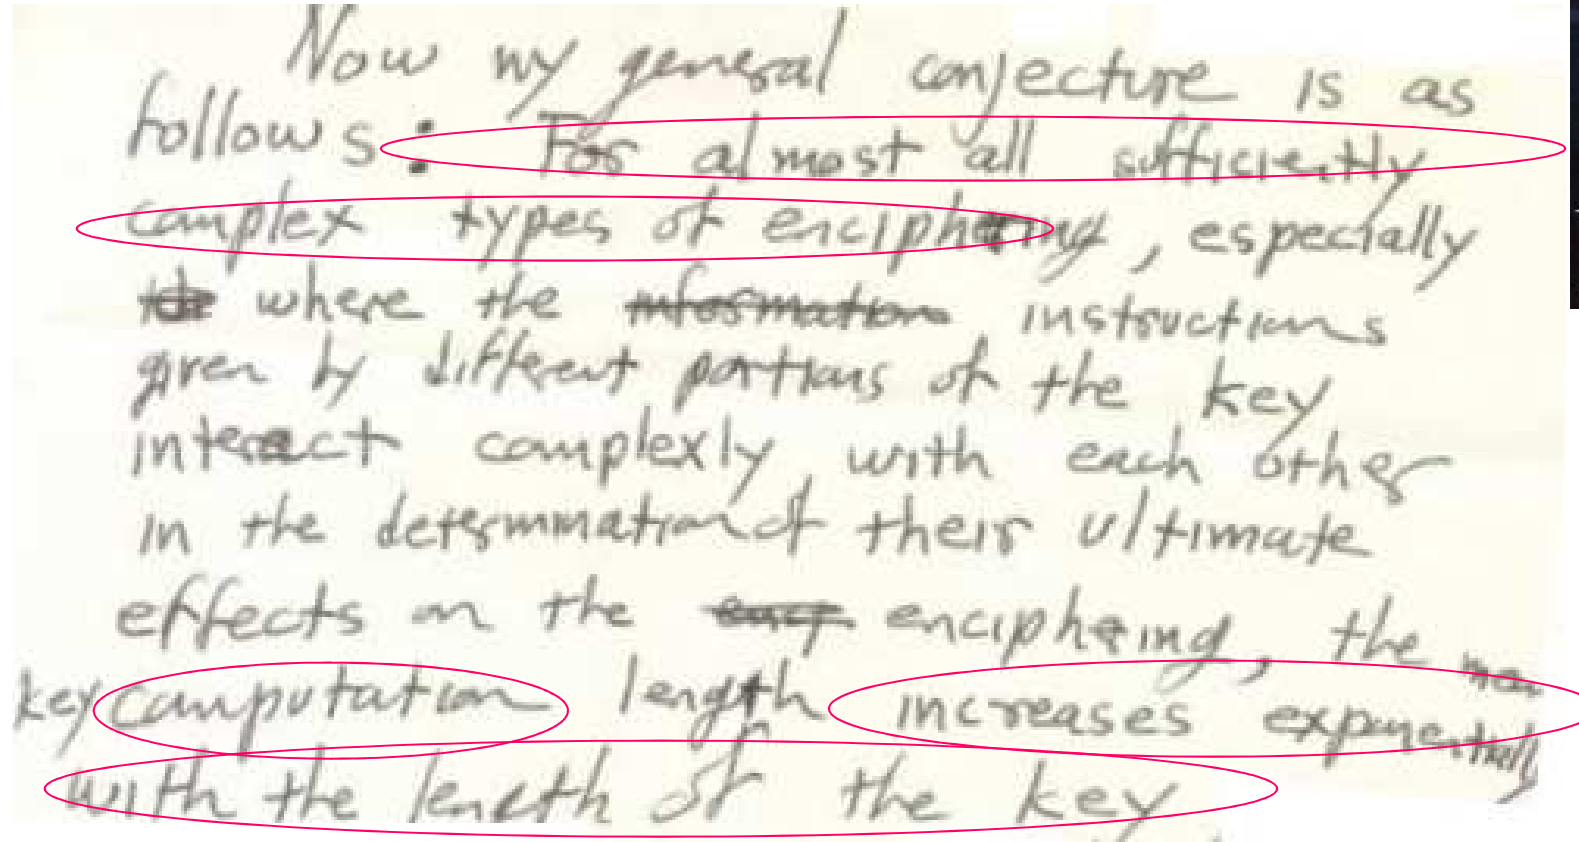 Now my general conjecture is as
follows: For almost all sufficiently
complex types of enciphering, especially
where the instructions
given by different portions of the key
interact complexly with each other
in the determination of their ultimate
effects on the enciphering, the mean
key computation length increases exponentially
with the length of the key